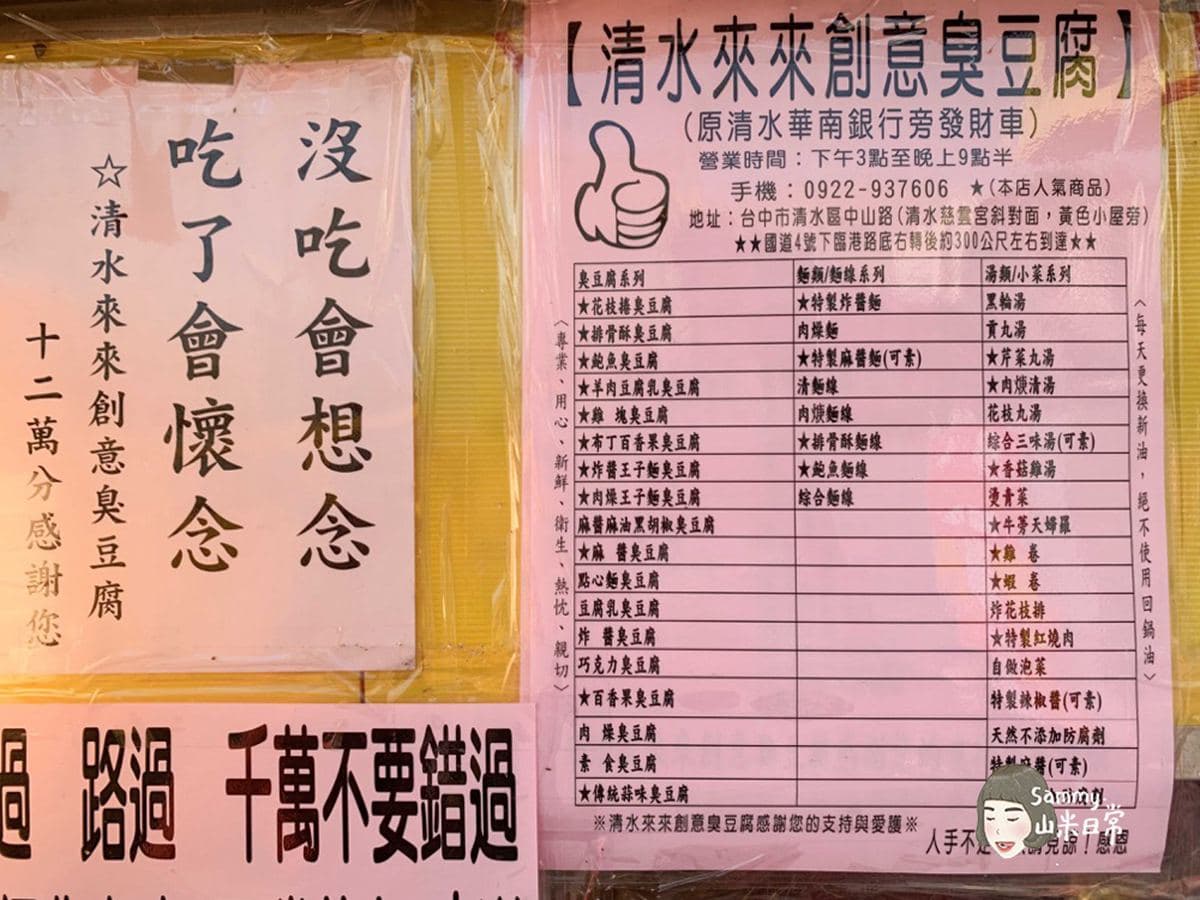 沒吃會想念
吃了會懷念
☆清水來來創意臭豆腐
十二萬分感謝您
過 路過 千萬不要錯過
【清水來來創意臭豆腐】
(原清水華南銀行旁發財車)
營業時間：下午3點至晚上9點半
手機：0922-937606 ★(本店人氣商品)
地址：台中市清水區中山路(清水慈雲宮斜對面，黃色小屋旁)
★★國道4號下臨港路底右轉後約300公尺左右到達★★
〈專業、用心、新鮮、衛生、熱忱、親切〉
臭豆腐系列 麵類/麵線系列 湯類/小菜系列
★花枝捲臭豆腐 ★特製炸醬麵 黑輪湯
★排骨酥臭豆腐 肉燥麵 貢丸湯
★鮑魚臭豆腐 ★特製麻醬麵(可素) ★芹菜丸湯
★羊肉豆腐乳臭豆腐 清麵線 ★肉焿清湯
★雞 塊臭豆腐 肉焿麵線 花枝丸湯
★布丁百香果臭豆腐 ★排骨酥麵線 綜合三味湯(可素)
★炸醬王子麵臭豆腐 ★鮑魚麵線 ★香菇雞湯
★肉燥王子麵臭豆腐 綜合麵線 燙青菜
麻醬麻油黑胡椒臭豆腐 ★牛蒡天婦羅
★麻 醬臭豆腐 ★雞 卷
點心麵臭豆腐 ★蝦 卷
豆腐乳臭豆腐 炸花枝排
炸 醬臭豆腐 ★特製紅燒肉
巧克力臭豆腐 自做泡菜
★百香果臭豆腐 特製辣椒醬(可素)
肉 燥臭豆腐 天然不添加防腐劑
素 食臭豆腐 特製麻醬(可素)
★傳統蒜味臭豆腐
〈每天更換新油，絕不使用回鍋油〉
※清水來來創意臭豆腐感謝您的支持與愛護※
人手不 請見諒！感恩
Sammy
山米日常